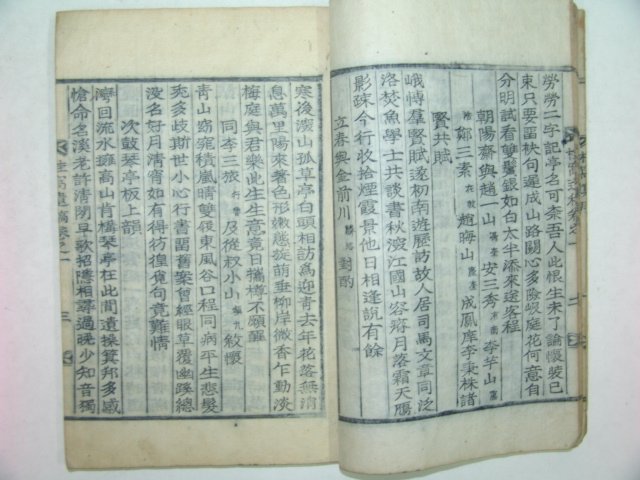 勞勞二字記亭名可柰吾人此恨生未了論懷裝已
束只要留袂句遲成山路關心多險峴庭花何意自
分明試看雙鬢銀如白太半添來送客程
朝陽齋與趙一山 安三秀 李芉山
鄭三素 趙海山 成鳳庠李秉株諸
賢共賦
峨博羣賢賦遂初南遊歷訪故人居司馬文章同泛
洛焚魚學士共談書秋深江國山容瘠月落霜天鴈
影疎今行收拾煙霞景他日相逢說有餘
立春與金前川 對酌
寒後深山孤草亭白頭相訪爲迎靑去年花落無消
息萬里陽來著色形嫩慈旋萌垂柳岸微香乍動淡
梅庭與君樂此生生意竟日携樽不願醒
同李三旅 及從叔小山 敍懷
靑山窈窕積嵐晴雙後東風谷口程同病平生悲髮
短多歧斯世小心行書留舊案曾經眼草覆幽蹊總
沒名好月淸宵如有得彷徨覓句竟難情
次鼓琴亭板上韻
灣回流水擁高山肯構琴亭在此間遺操箕邦多感
愴命名溪老許淸閒早歌招隱相尋過晩少知音獨